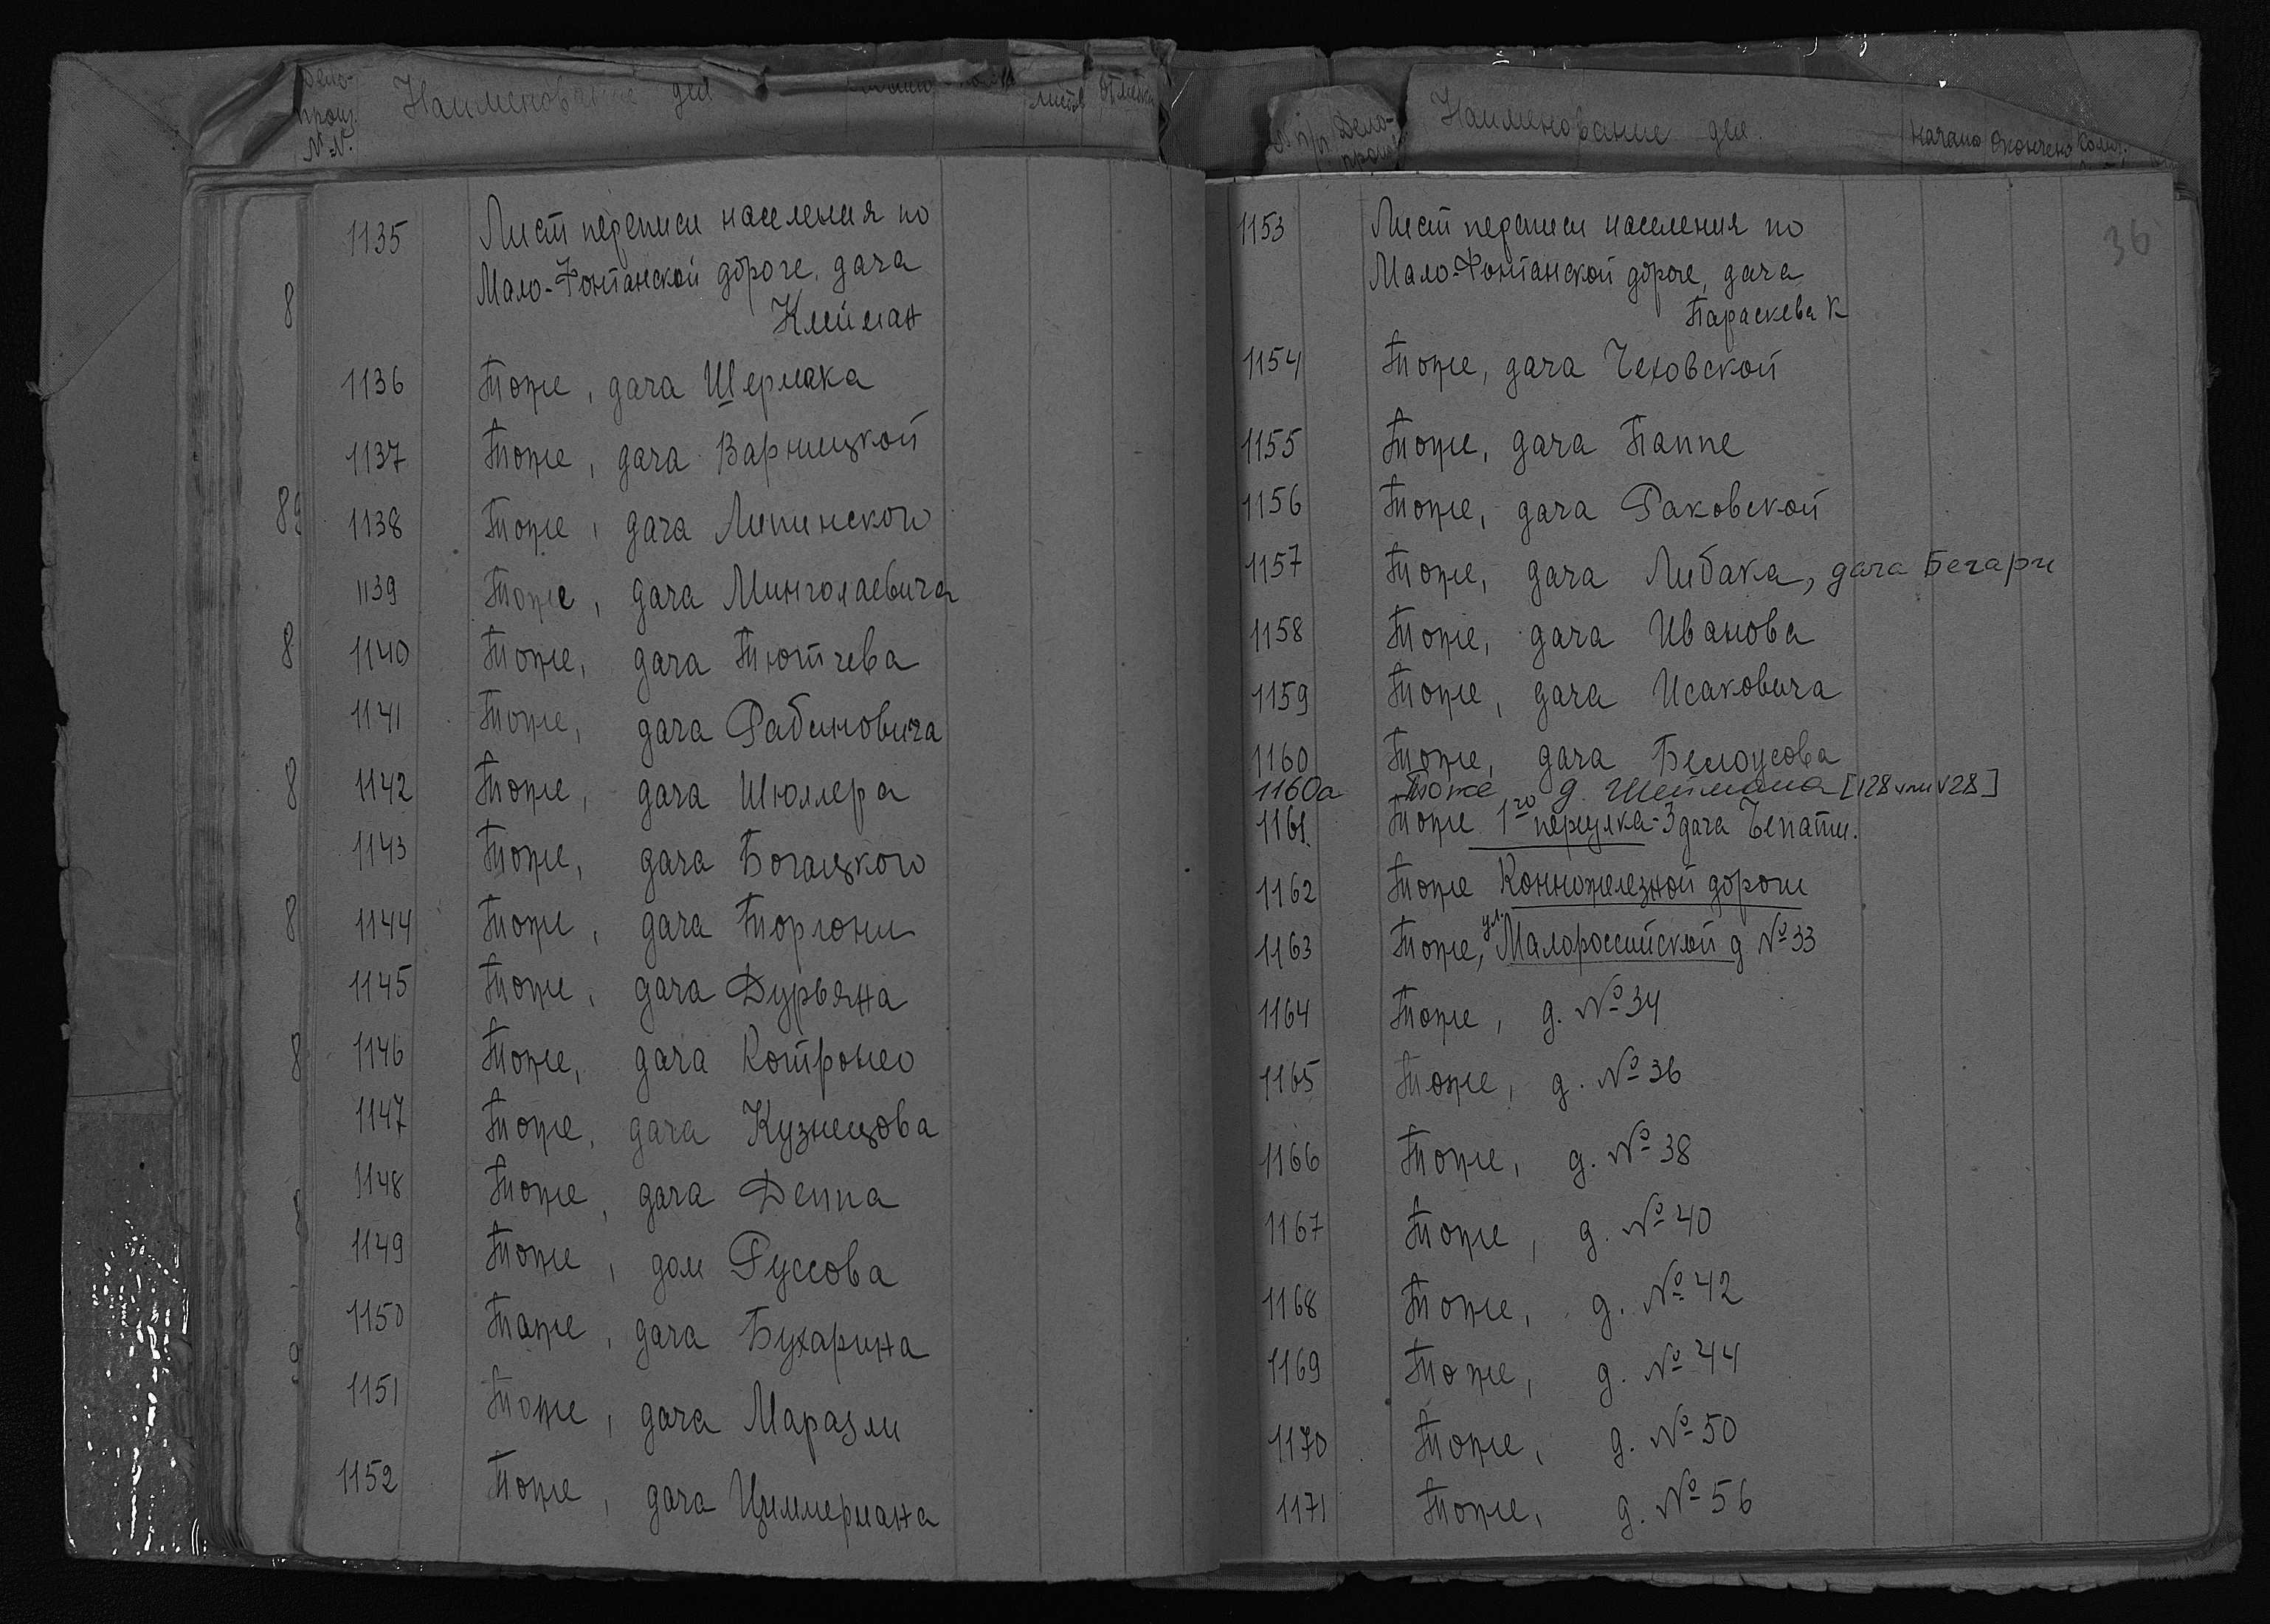 Дело-
произ.
N.N.
Наименование дел
листов
Отметки
1135 Лист переписи населения по
Мало-Фонтанской дороге, дача
Клейман
1136 Тоже, дача Шермака
1137 Тоже, дача Варницкой
1138 Тоже, дача Липинского
1139 Тоже, дача Минголаевича
1140 Тоже, дача Тютчева
1141 Тоже, дача Рабиновича
1142 Тоже, дача Шюллера
1143 Тоже, дача Богацкого
1144 Тоже, дача Торгони
1145 Тоже, дача Дурьяна
1146 Тоже, дача Котронео
1147 Тоже, дача Кузнецова
1148 Тоже, дача Деппа
1149 Тоже, дом Руссова
1150 Тоже, дача Бухарина
1151 Тоже, дача Маразли
1152 Тоже, дача Циммермана
п/п Дело-
Наименование дел.
Начато Окончено Колич.
36
1153 Лист переписи населения по
Мало-Фонтанской дороге, дача
Параскева К
1154 Тоже, дача Чеховской
1155 Тоже, дача Паппе
1156 Тоже, дача Раковской
1157 Тоже, дача Либака, дача Бегари
1158 Тоже, дача Иванова
1159 Тоже, дача Исаковича
1160 Тоже, дача Белоусова
1160а Тоже д. Шеймана [128 или V28]
1161 Тоже 1го переулка-3 дача
1162 Тоже Конножелезной дороги
1163 Тоже, ул. Малороссийской д №33
1164 Тоже, д. №34
1165 Тоже, д. №36
1166 Тоже, д. №38
1167 Тоже, д. №40
1168 Тоже, д. №42
1169 Тоже, д. №44
1170 Тоже, д. №50
1171 Тоже, д. №56